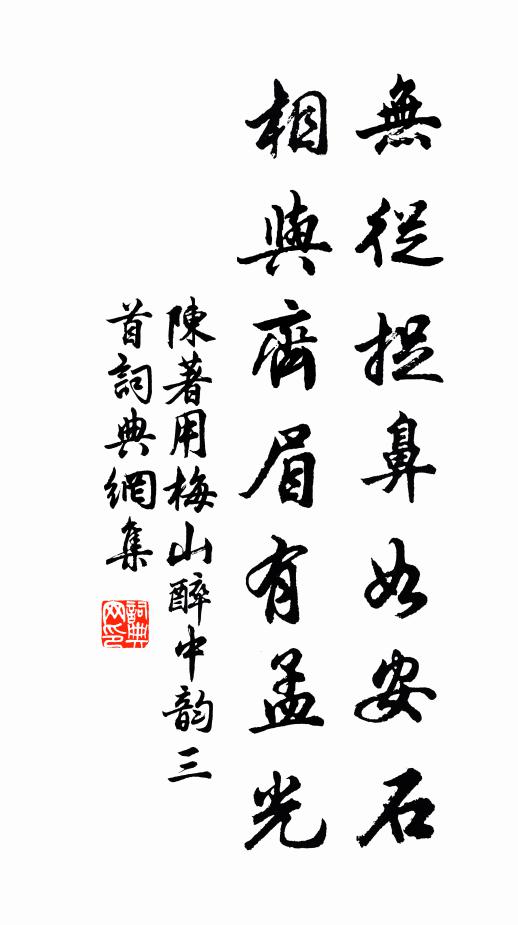 無從捉鼻如安石
相與齊眉有孟光
陳著用梅山醉中韵三
首詞典網集
詞典
网印